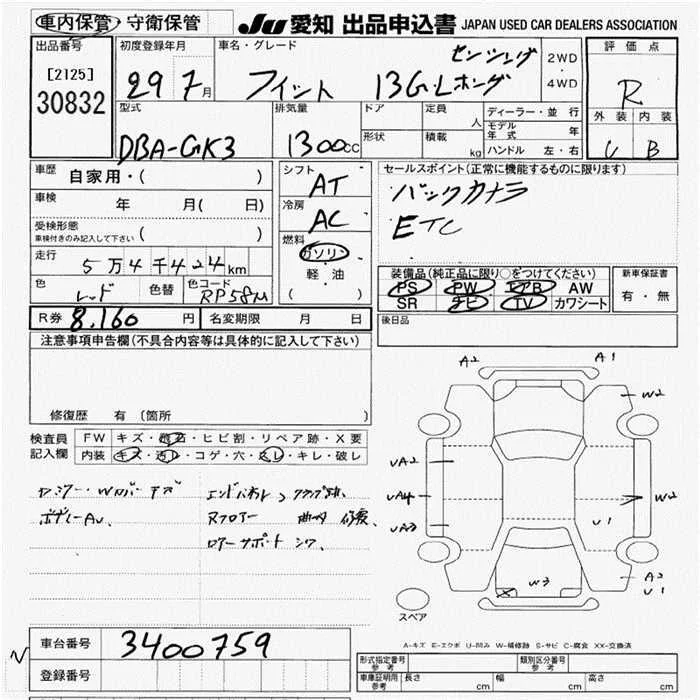 車内保管・守衛保管 JU 愛知 出品申込書 JAPAN USED CAR DEALERS ASSOCIATION
出品番号 初度登録年月 車名・グレード センシング 2WD 評価点
[2125] 29 7月 フィット 13G・Lホンダ ・ 4WD R
30832 型式 排気量 ドア 定員 人 ディーラー・並行 外装 内装
DBA-GK3 1300cc 形状 積載 kg モデル年式 年 B
ハンドル 左・右
車歴 自家用・( ) シフト AT セールスポイント(正常に機能するものに限ります)
車検 年 月( 日) 冷房 AC バックカメラ
受検形態 ( ) ETC
車検付きのみ記入して下さい 燃料 ガソリン
走行 5万4千424km 軽・油 装備品(純正品に限り○をつけてください) 新車保証書
色 レッド 色替 色コード RP58M ( ) PS PW エアB AW 有・無
SR ナビ TV カワシート
R券 8,160 円 名変期限 月 日 後日品
注意事項申告欄(不具合内容等は具体的に記入して下さい)
A2 A1
W2
修復歴 有(箇所
検査員 FW キズ・飛石・ヒビ割・リペア跡・X要
記入欄 内装 キズ・汚レ・コゲ・穴・スレ・キレ・破レ
UA2
UA4 W2
ボデーAU. 曲り 修復、
UA3 U1
リアーサポート シワ、
W3 A2
X U1
スペア
A-キズ E-エクボ U-凹み W-補修跡 S-サビ C-腐食 XX-交換済
車台番号 3400759
登録番号 形式指定番号 参考 類別区分番号 参考
車庫証明用 参考 長さ cm 幅 cm 高さ cm